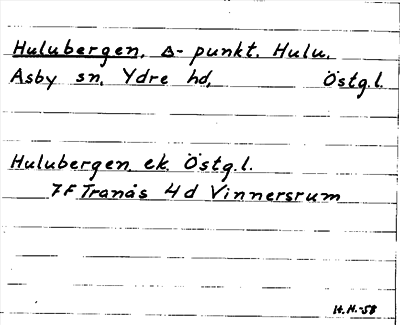 Hulubergen, Δ- punkt. Hulu.
Asby sn. Ydre hd, Östg.l.
Hulubergen. ek. Östg.l.
7F Tranås 4d Vinnersrum
H.H.-58